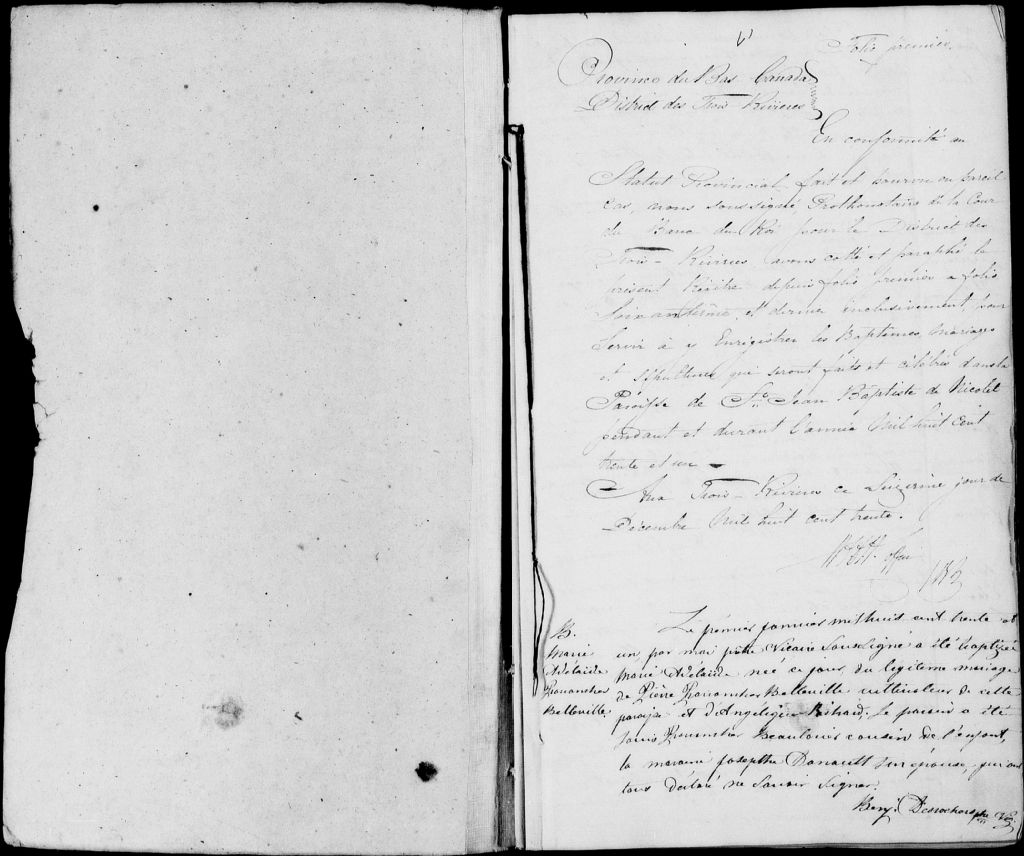 Folio premier.
Province du Bas Canada
District des Trois-Rivieres
En conformité au
Statut Provincial fait et pourvu en pareil
cas, nous soussigné, Prothonotaire de la Cour
du Banc du Roi pour le District des
Trois-Rivieres avons cotté et paraphé le
présent Régitre depuis folio premier a folio
et dernier inclusivement, pour
Servir à y Enrégistrer les Baptêmes, Mariages
et Sépultures qui seront faits et célébrés dans la
Paroisse de St. Jean Baptiste de Nicolet
pendant et durant l'année Mil huit Cent
trente et un
Aux Trois-Rivieres ce jour de
Décembre Mil huit cent trente.
B.
Marie
Adélaïde
Belleville.
Le prémier janvier mil huit cent trente et
un, par moi prêtre Vicaire Soussigné a été baptizée
Marie Adélaïde née ce jour, du légitime mariage
de Pierre Belleville cultivateur de cette
paroisse et d'Angélique Richard. Le parain a été
Louis Beaulouis cousin de l'enfant,
la maraine Josephte Danault Son épouse, qui ont
tous déclaré ne Savoir Signer.
Benj. Desrochers ptre Vic.